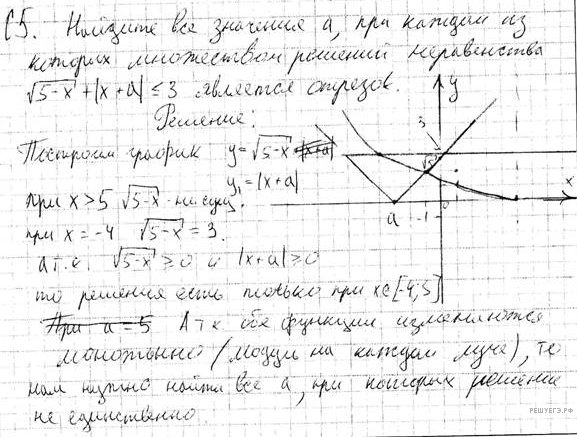 C5. Найдите все значения a, при каждом из
которых множеством решений неравенства
√5-x + |x+a| ≤ 3 является отрезок.
Решение:
Построим график y=√5-x |x+a|
y₁=|x+a|
при x>5 √5-x - не сущ.
при x=-4 √5-x = 3.
a т.к. √5-x ≥ 0 и |x+a| ≥ 0
то решения есть только при x∈[-4;5]
При a=5 А т к обе функции изменяются
монотонно (модуль на каждом луче), то
нам нужно найти все a, при которых решение
не единственно.
y
3
√5
x
a
-1
0
РЕШУЕГЭ.РФ